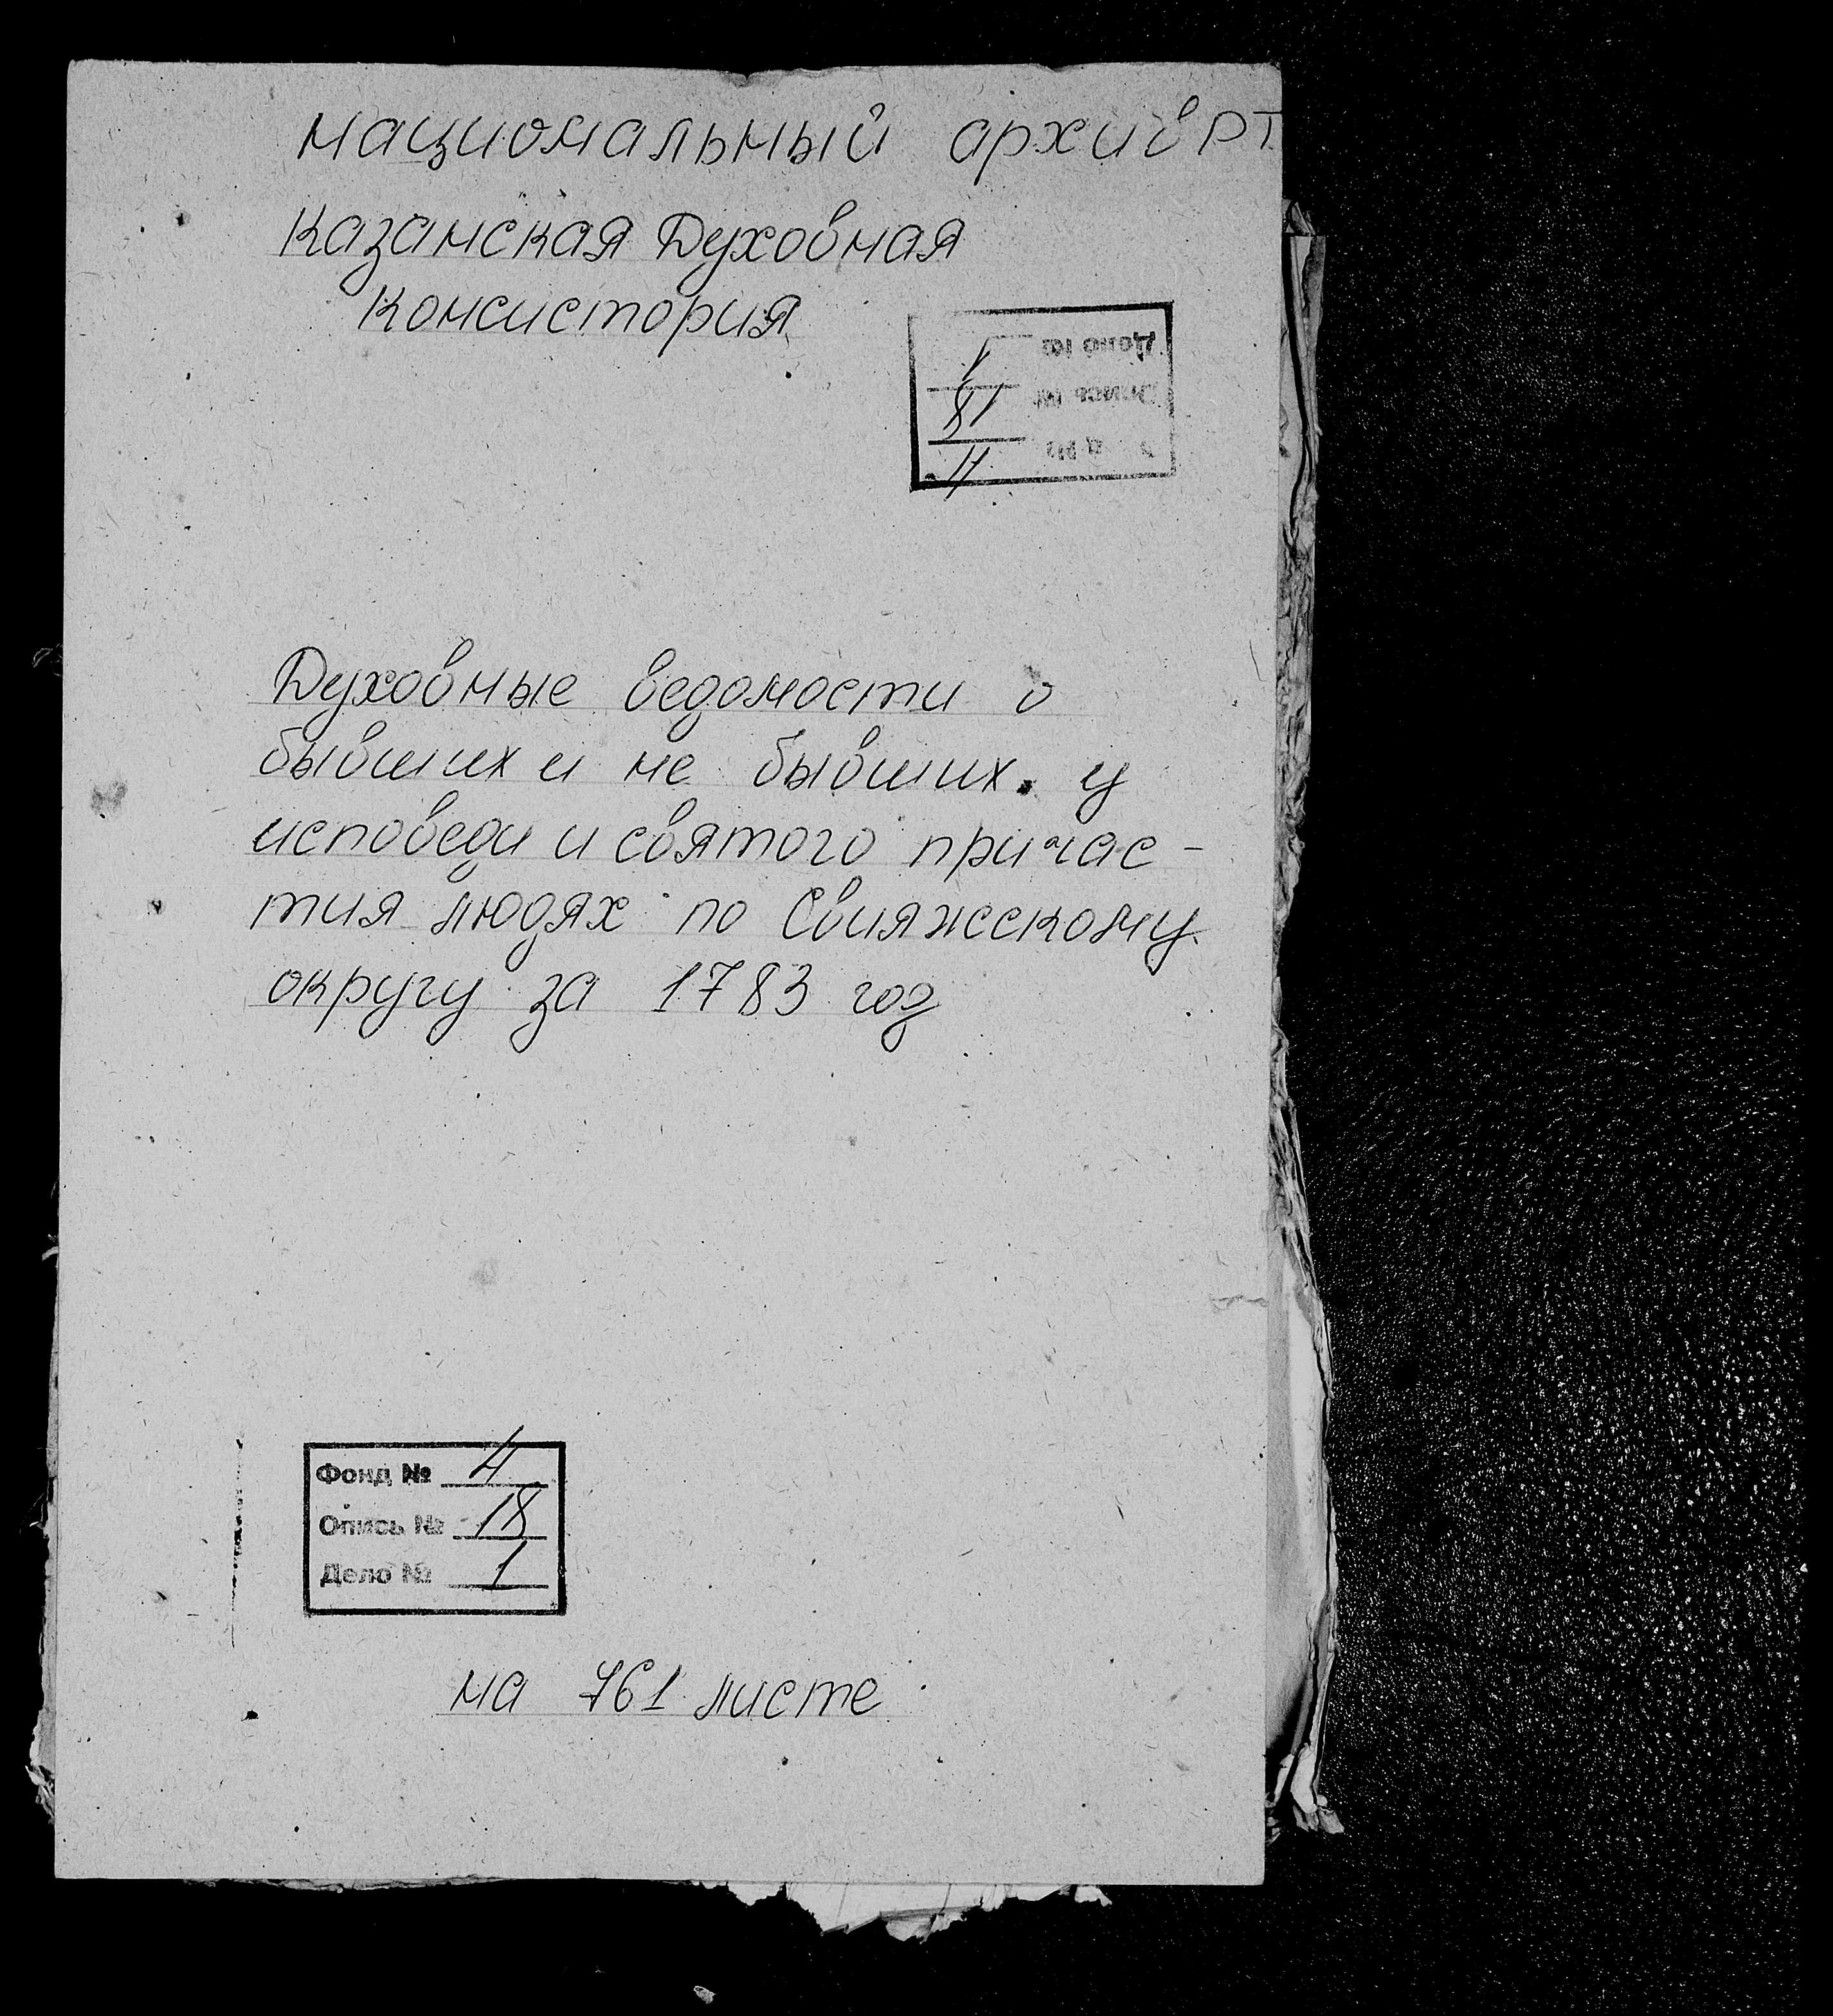 Национальный архив РТ
Казанская Духовная
Консистория
Дело №  1
Опись №  18
4
Духовные ведомости о
бывших и не бывших у
исповеди и святого причас-
тия людях по Свияжскому
округу за 1783 год
Фонд № 4
Опись № 18
Дело № 1
на 761 листе